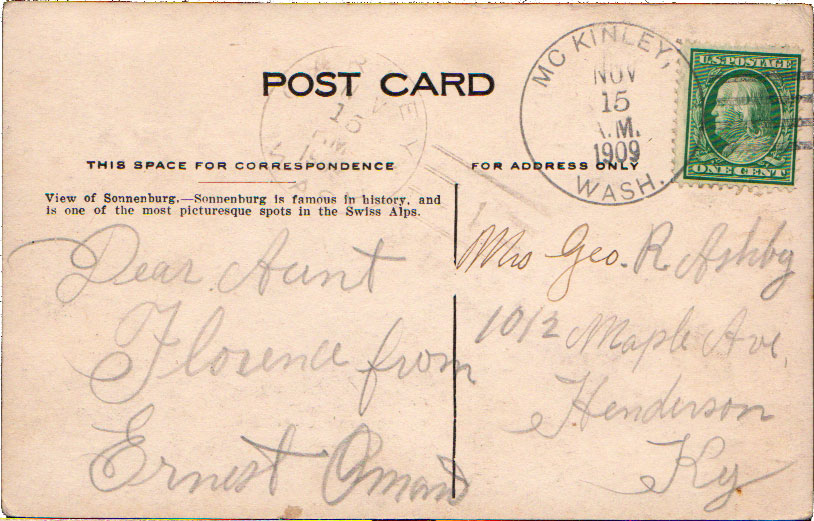 POST CARD
MC KINLEY,
NOV
15
A.M.
1909
WASH.
U.S. POSTAGE
ONE CENT
THIS SPACE FOR CORRESPONDENCE
FOR ADDRESS ONLY
View of Sonnenburg.—Sonnenburg is famous in history, and
is one of the most picturesque spots in the Swiss Alps.
Dear Aunt
Florence from
Ernest
Mrs Geo. R. Ashby
1012 Maple Ave.
Henderson
Ky